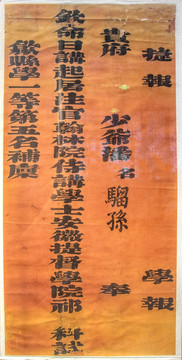 捷報
學報
貴府
少爺
名
騮孫
奉
欽命日講起居注官翰林院侍講學士安徽提督學院祁
科試
歙縣學一等第五名補廩